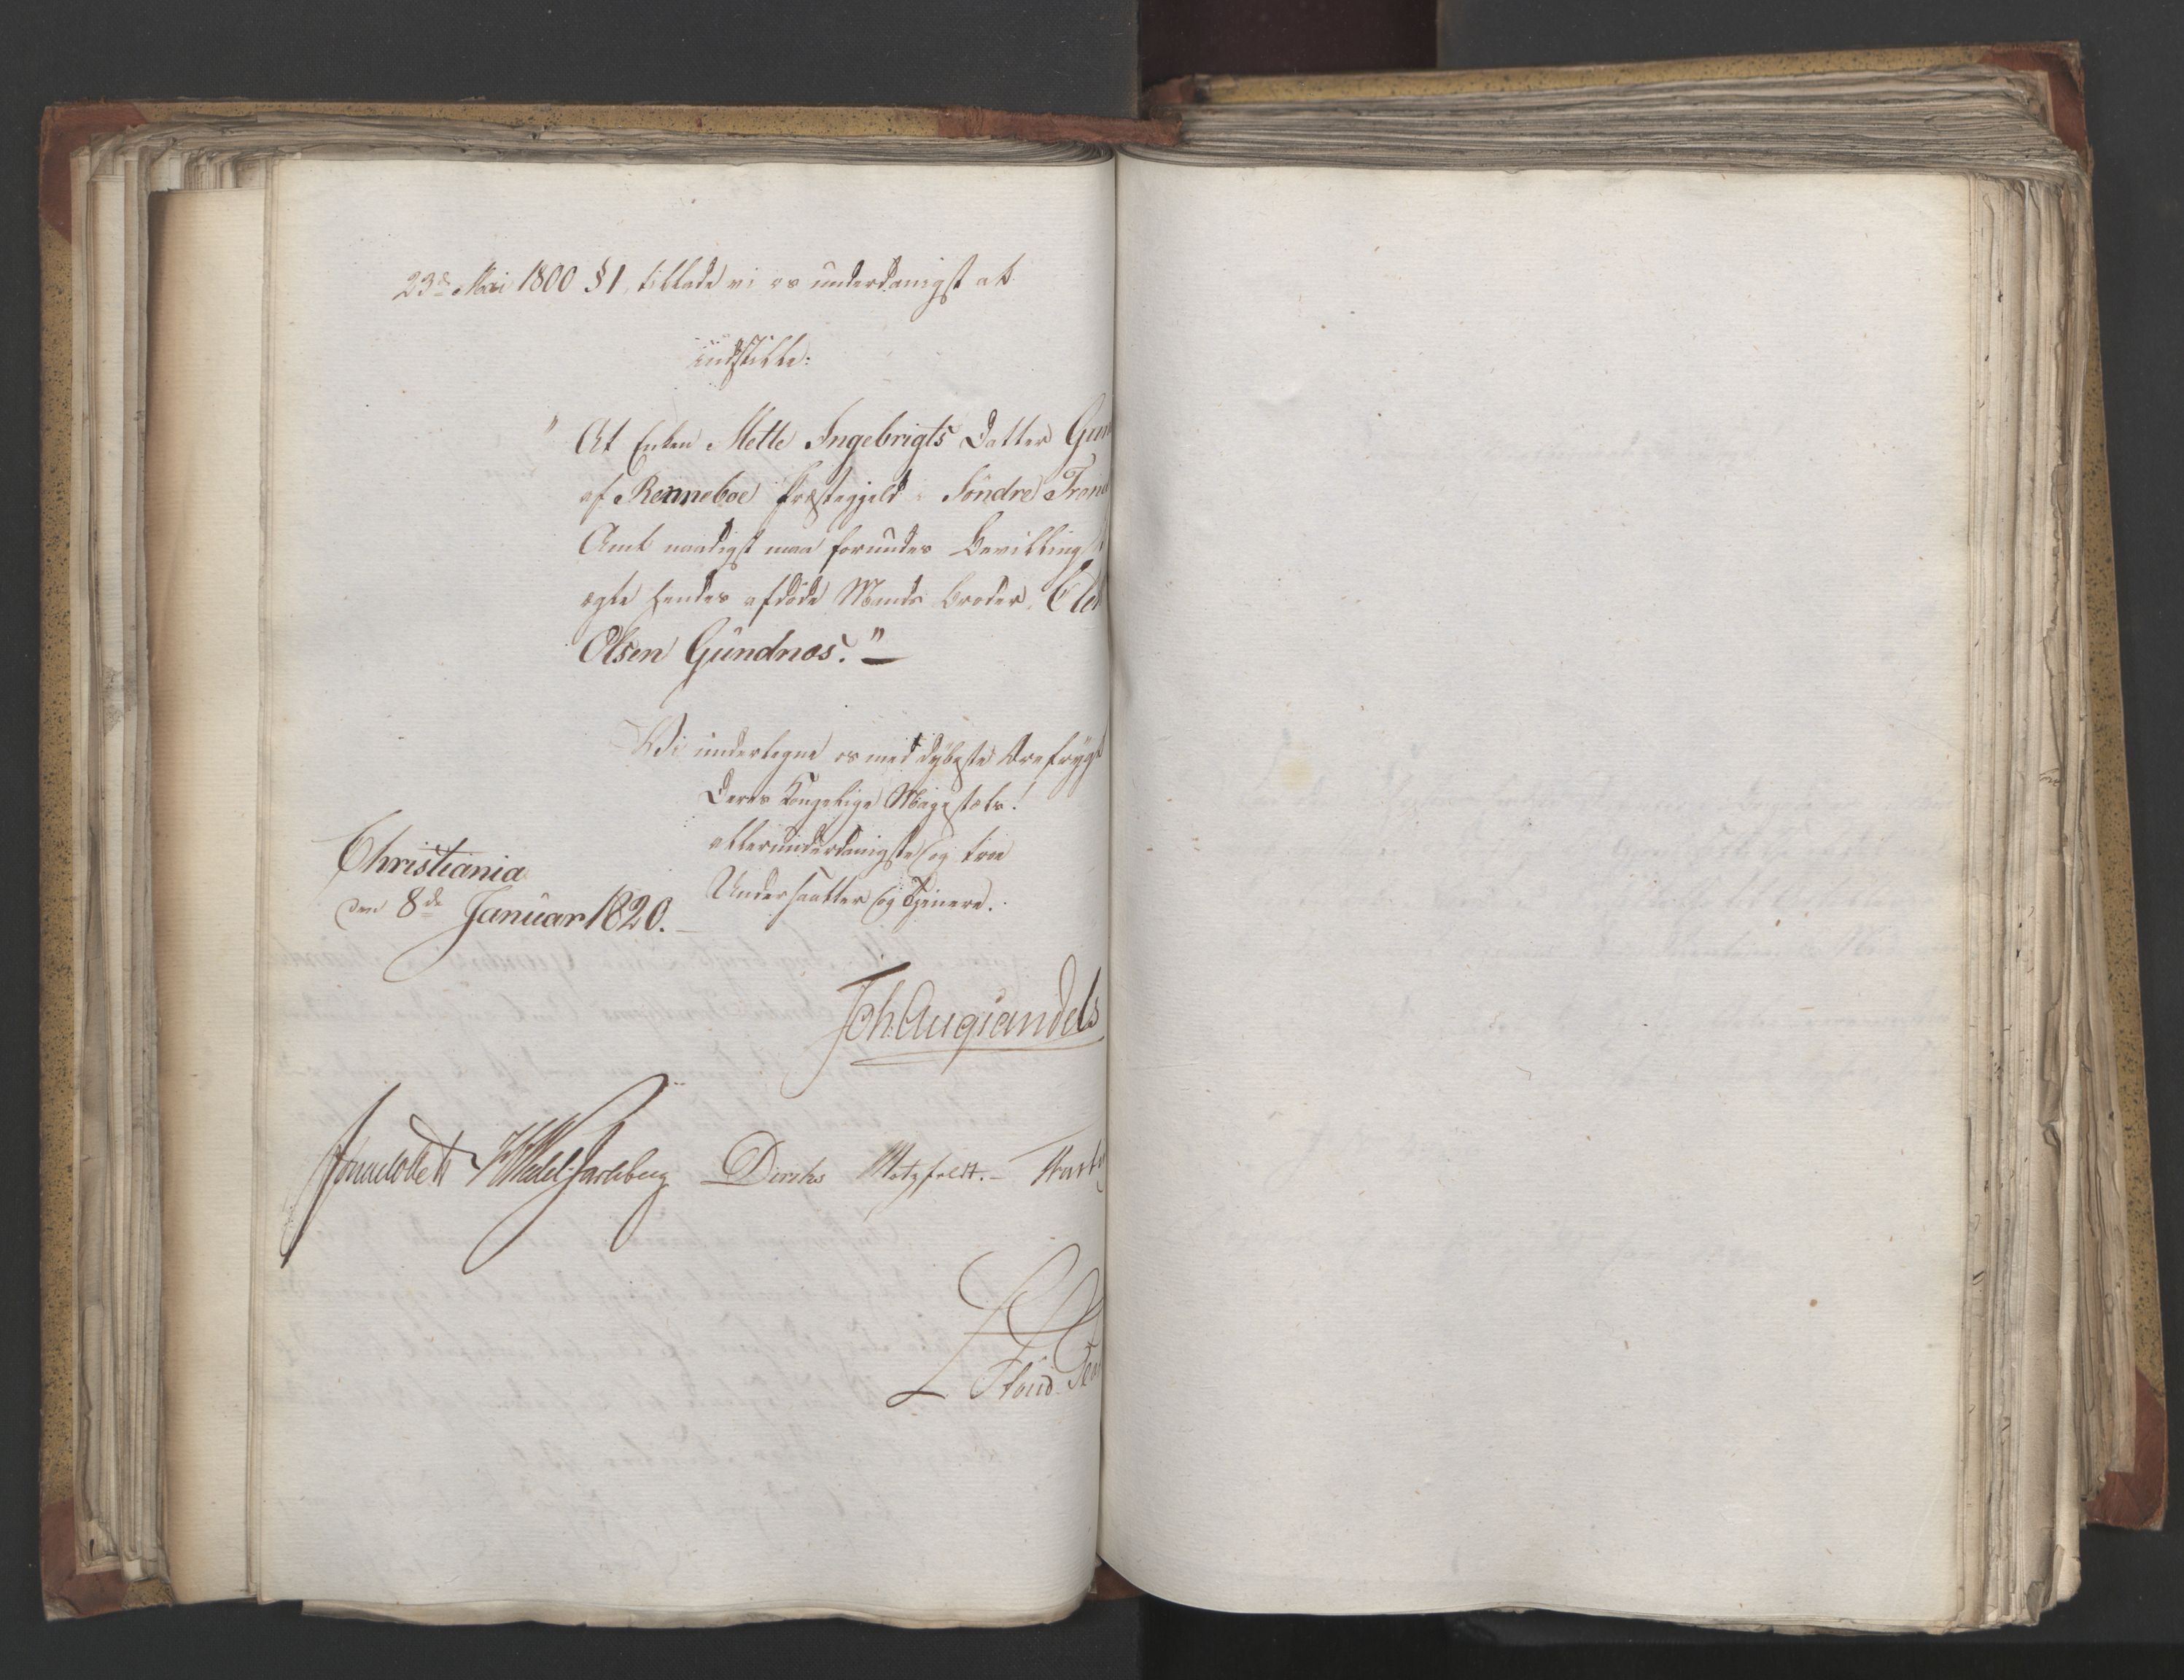 23de Mai 1800 §1, tillade vi os underdanigst at
indstille:
" At Enken Mette Ingebrigts Datter Gun
af Renneboe Præstegjeld i Søndre Tron
Amt naadigst maa forundes Bevilling
ægte hendes afdøde Mands Broder,
Olsen Gundnæs."
Vi undertegne os med dybeste Ærefrygt
Deres Kongelige Majestæts!
allerunderdanigste og troe
Undersaatter og Tjenere.
Christiania
den 8de Januar 1820.
Joh. Aug. Sandels
Sommerhielm HWedel Jarlsberg Diriks Motzfeldt.